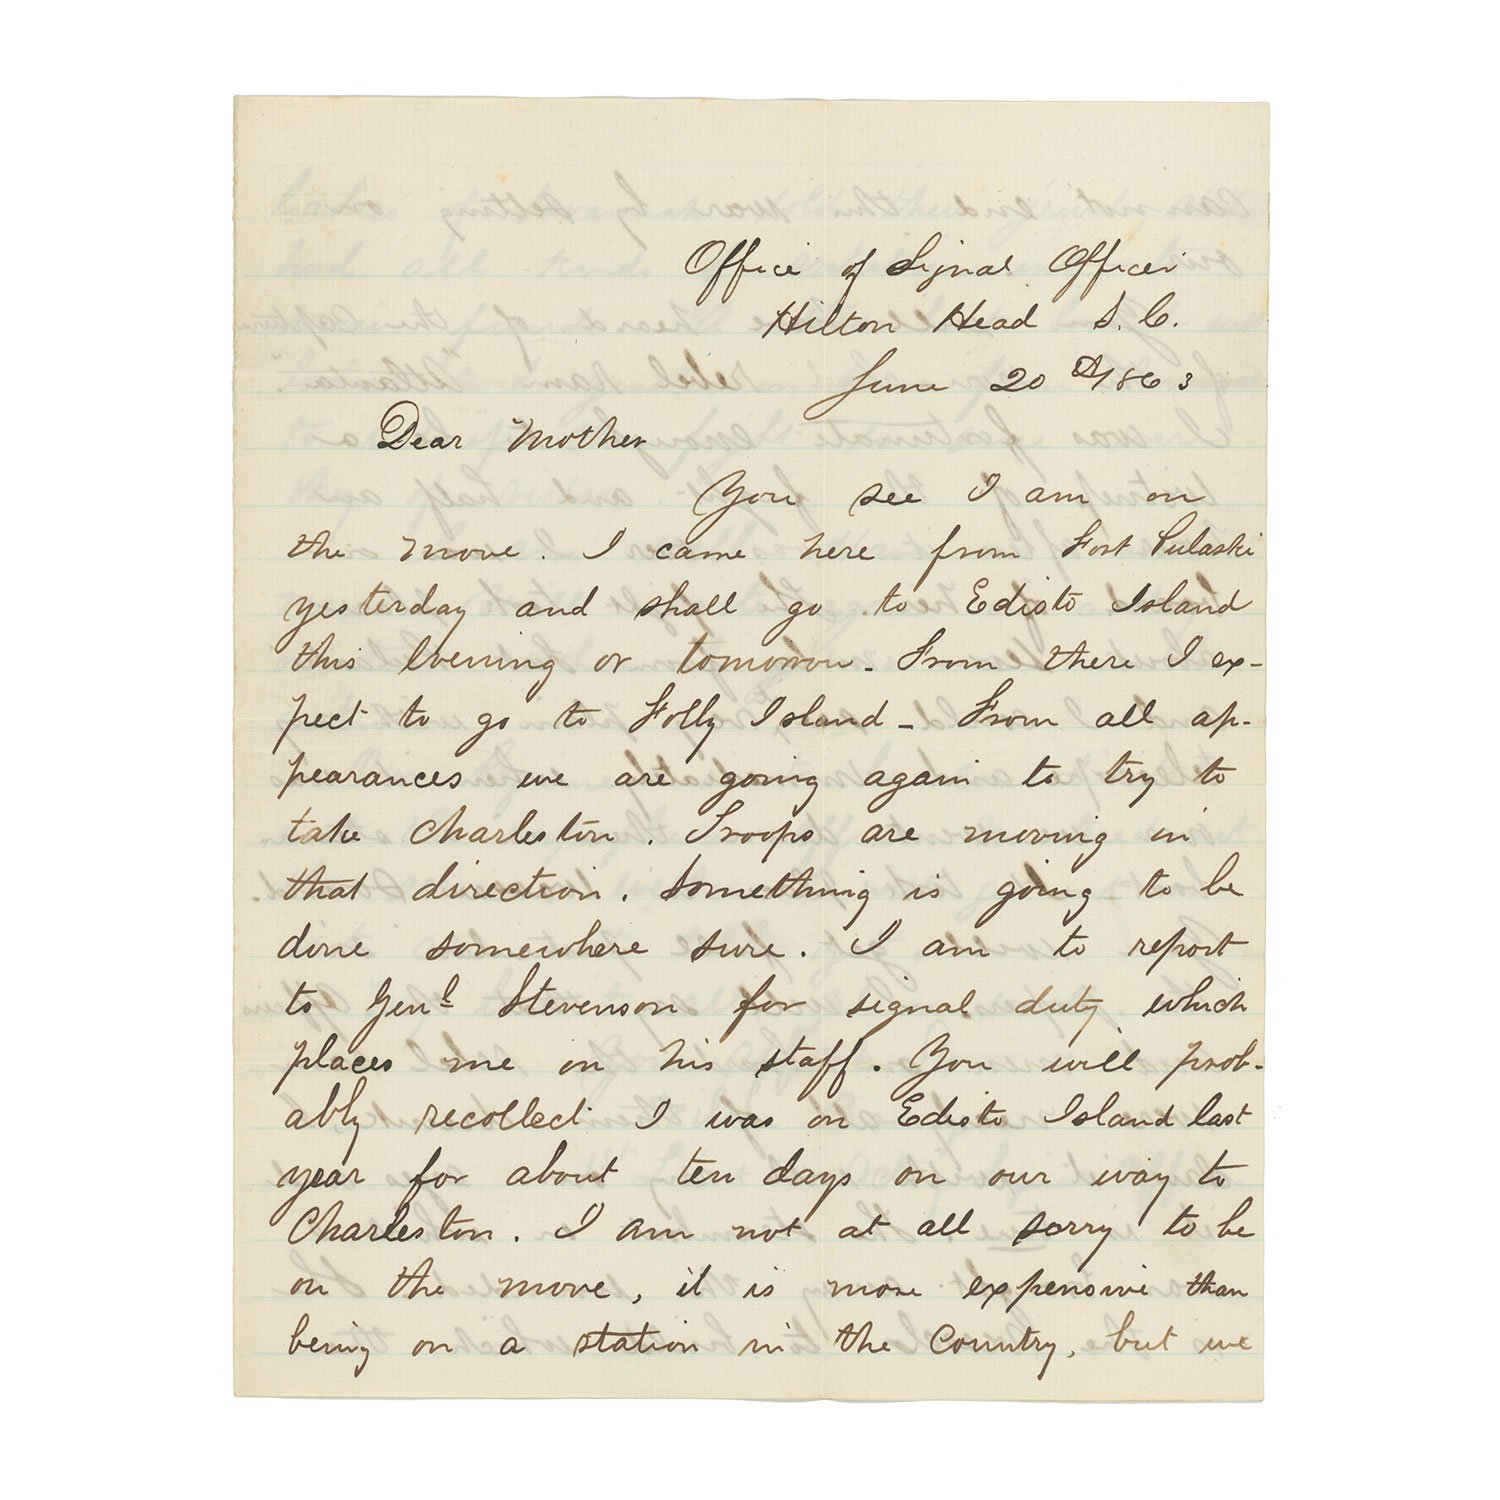 Office of Signal Officer
Hilton Head S.C.
June 20th 1863
Dear Mother
You see I am on
the move. I came here from Fort Pulaski
yesterday and shall go to Edisto Island
this evening or tomorrow - From there I ex-
pect to go to Folly Island - From all ap-
pearances we are going again to try to
take Charleston. Troops are moving in
that direction. Something is going to be
done somewhere sure. I am to report
to Genl Stevenson for signal duty which
places me on his staff. You will prob-
ably recollect I was on Edisto Island last
year for about ten days on our way to
Charleston. I am not at all sorry to be
on the move, it is more expensive than
being on a station in the Country, but we